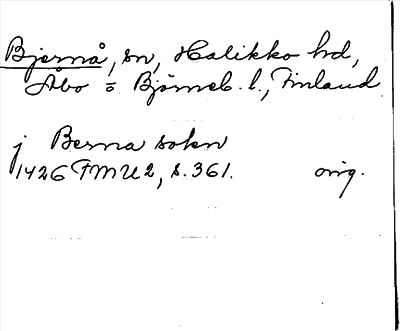 Bjernå, sn, Halikko hd,
Åbo o Björneb. l., Finland
j Berna sokn
1426 FMU 2, s. 361. orig.